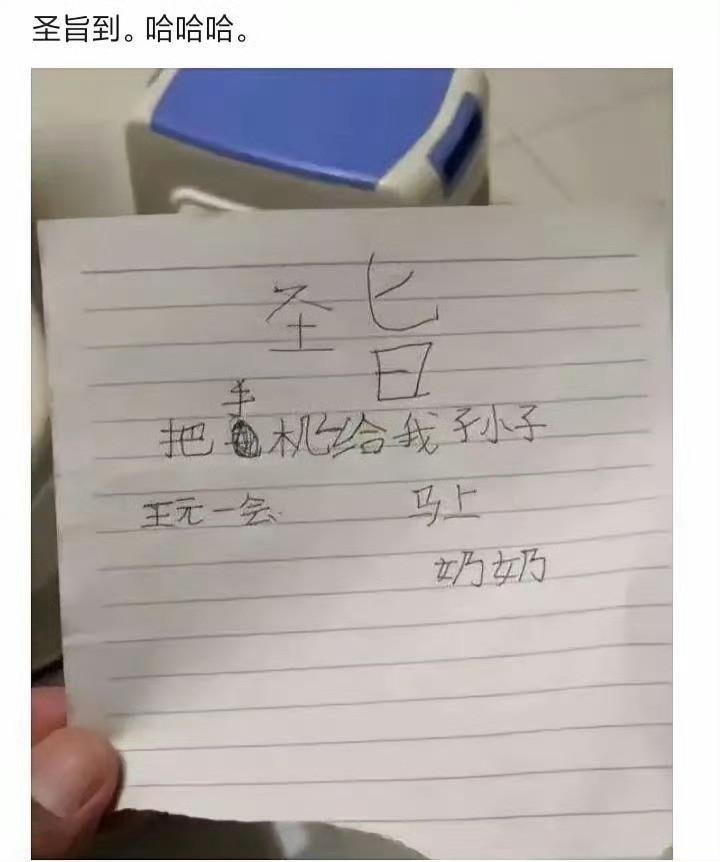 圣旨到。哈哈哈。
圣旨
把手机给我孑小子
王元一会 马上
奶奶